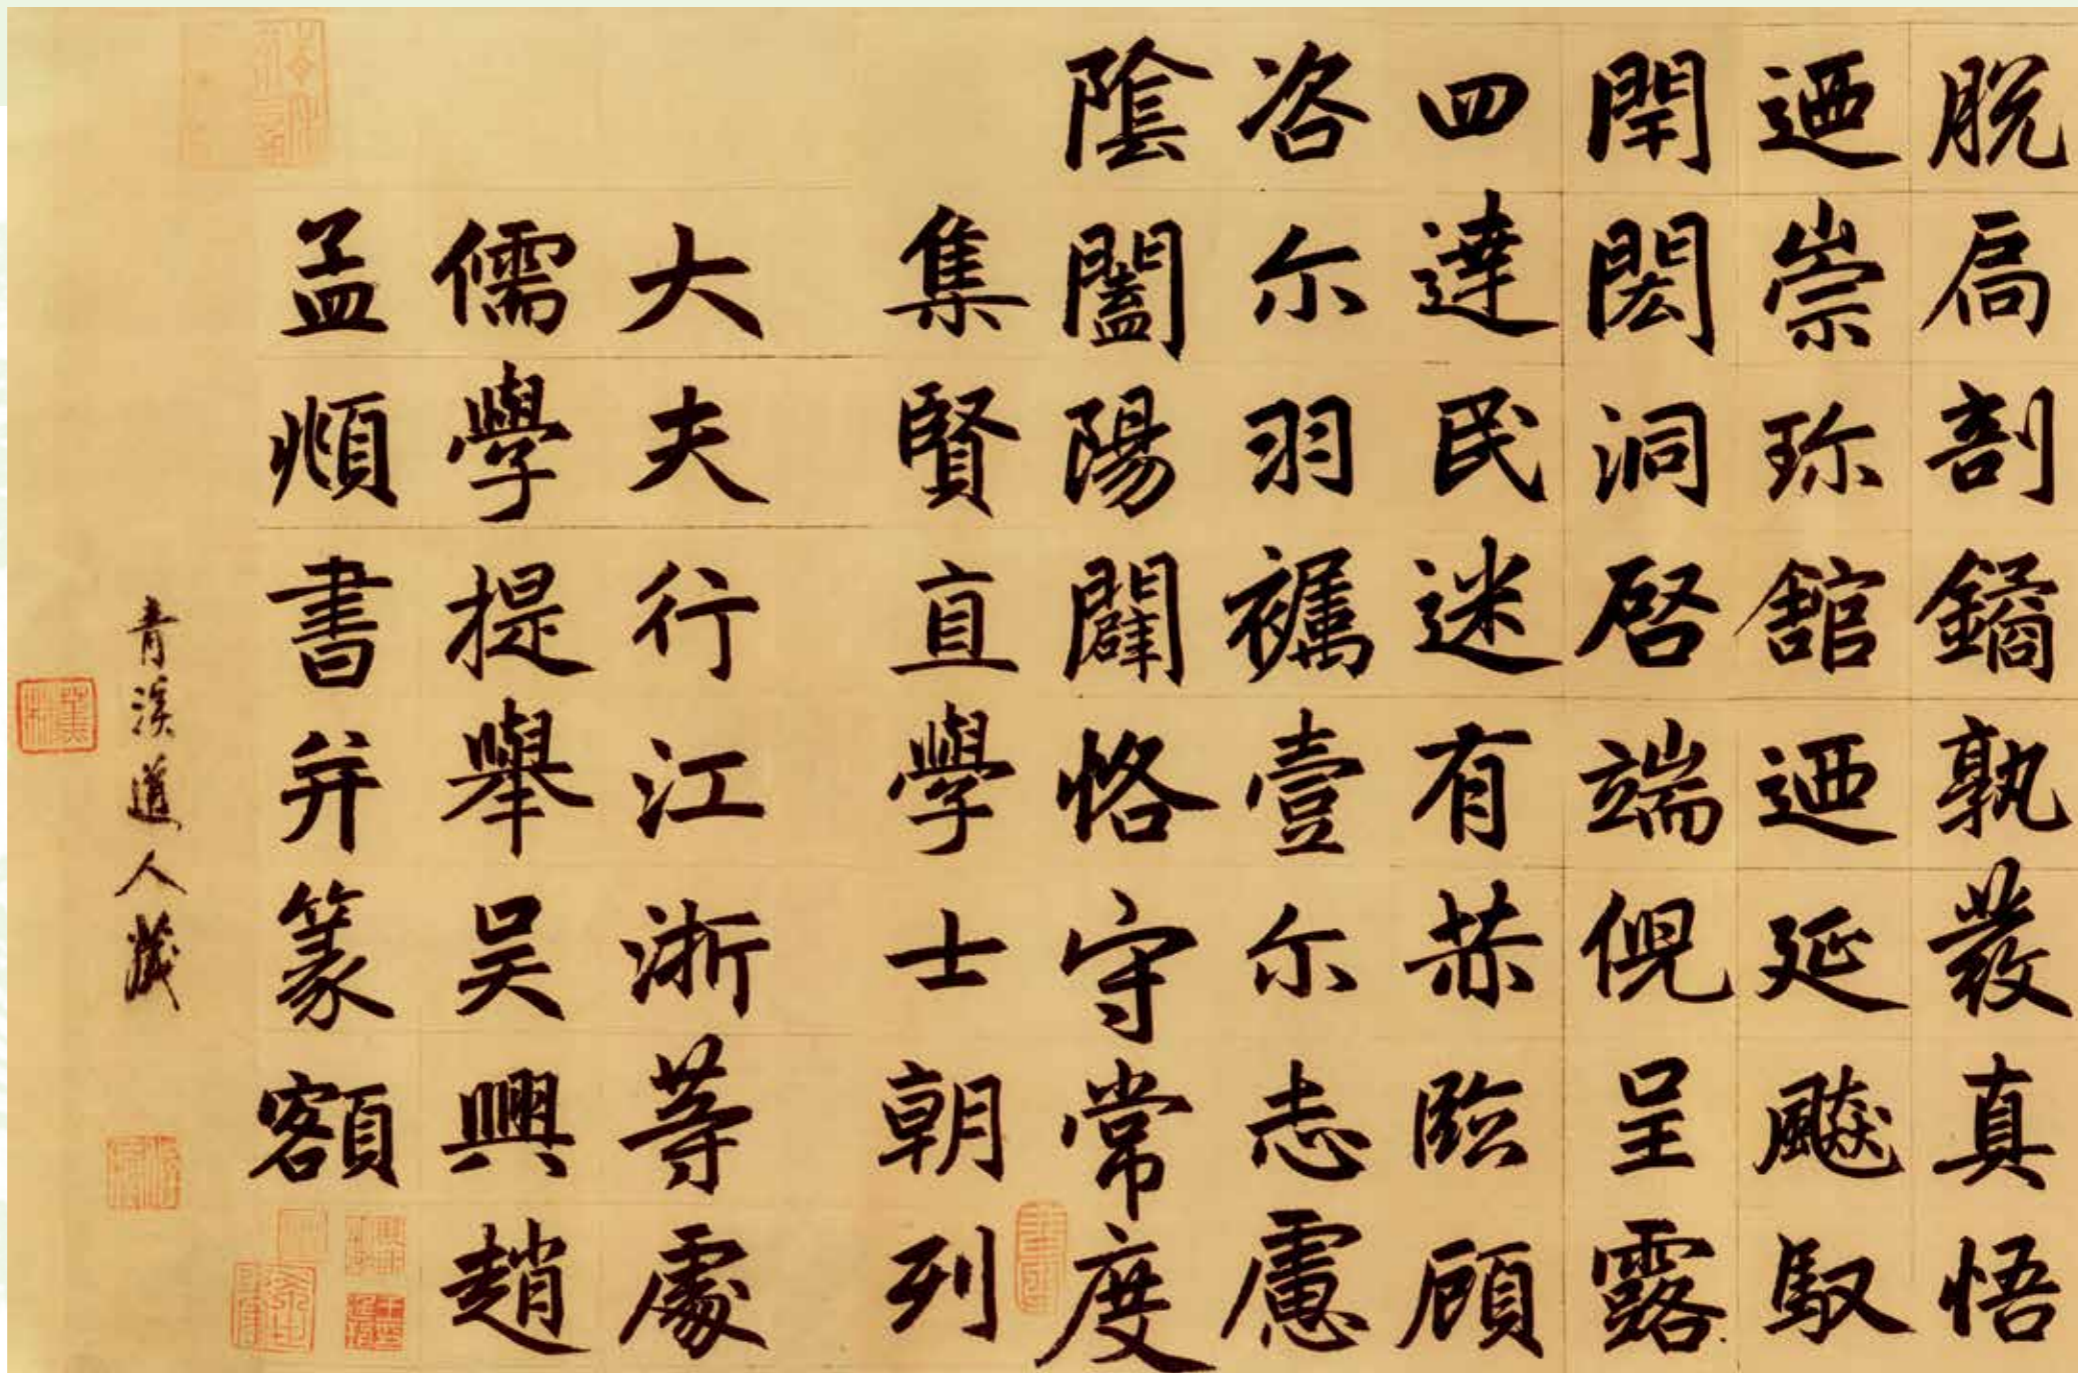 脱扃剖鐍孰發真悟
迺崇珎舘迺延飈馭
閈閎洞啓端倪呈露
四達民迷有赫臨顧
咨尓羽襹壹尓志慮
陰闔陽闢恪守常度
集賢直學士朝列
大夫行江浙等處
儒學提舉吴興趙
孟頫書并篆額
青溪道人藏